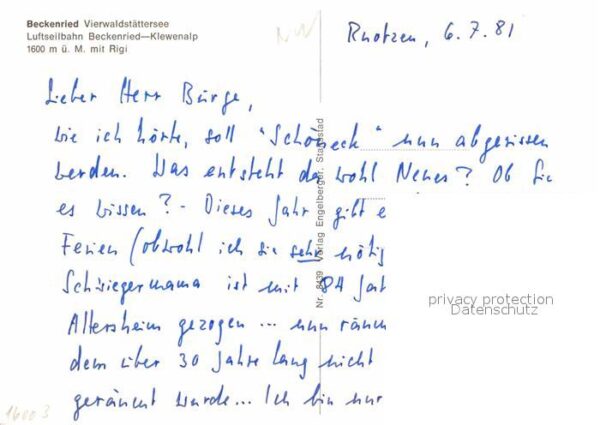 Beckenried Vierwaldstättersee
Luftseilbahn Beckenried—Klewenalp
1600 m ü. M. mit Rigi
NW
6.7.81
Lieber Herr Bürge,
wie ich hörte, soll "Schöneck" nun abgerissen
werden. Was entsteht da wohl Neues? Ob Sie
es wissen? - Dieses Jahr gibt e
Ferien (obwohl ich sie sehr nötig
Schwiegermama ist mit 84 Jah
Altersheim gezogen ... nun räum
dem über 30 Jahre lang nicht
geräumt wurde... Ich bin nur
Nr. 8439 Verlag Engelberger, Stansstad
privacy protection
Datenschutz
16003